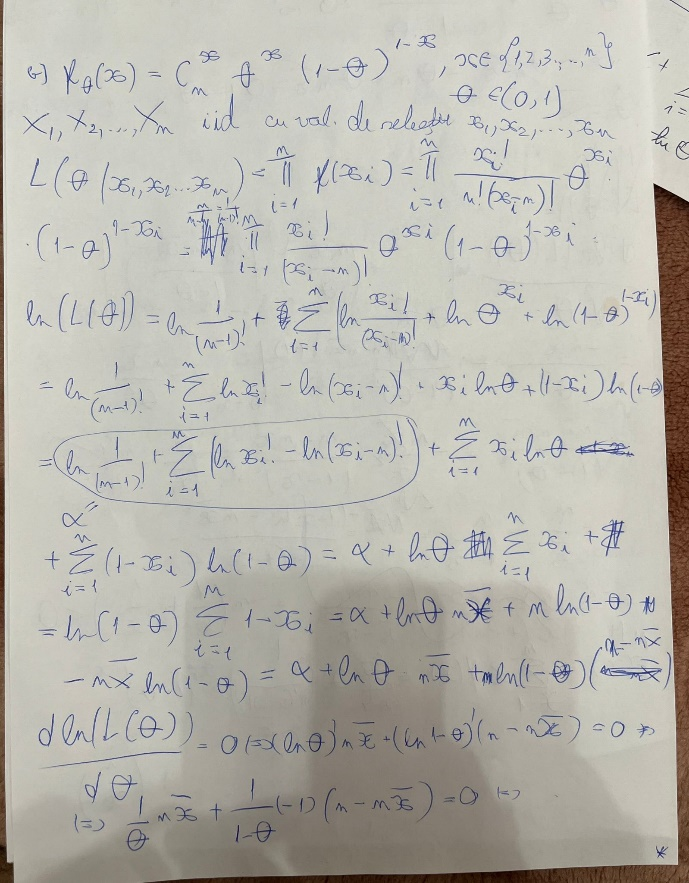 b) f_θ(x) = C_n^x θ^x (1-θ)^{1-x}, x∈{1,2,3,...,n}
θ ∈(0,1)
X_1, X_2, ..., X_n iid cu val. de selecție x_1, x_2, ..., x_n
L(θ/x_1,x_2...x_n) = ∏_{i=1}^{n} f(x_i) = ∏_{i=1}^{n} x_i!/(n!(x_i-n)!) θ^{x_i} ·
·(1-θ)^{1-x_i} = ∏_{i=1}^{n} x_i!/(x_i-n)! θ^{x_i} (1-θ)^{1-x_i} ·
ln(L(θ)) = ln 1/(n-1)! + ∑_{i=1}^{n} (ln x_i!/(x_i-n)! + ln θ^{x_i} + ln(1-θ)^{1-x_i})
= ln 1/(n-1)! + ∑_{i=1}^{n} ln x_i! - ln(x_i-n)! + x_i lnθ + (1-x_i) ln(1-θ)
= ln 1/(n-1)! + ∑_{i=1}^{n} (ln x_i! - ln(x_i-n)!) + ∑_{i=1}^{n} x_i lnθ
α"
+ ∑_{i=1}^{n} (1-x_i) ln(1-θ) = α + lnθ ∑_{i=1}^{n} x_i +
= ln(1-θ) ∑_{i=1}^{n} 1-x_i = α + lnθ n x̄ + n ln(1-θ)
- n x̄ ln(1-θ) = α + ln θ · n x̄ + ln(1-θ)(n - n x̄)
d ln(L(θ))/dθ = 0 (=> (lnθ)' n x̄ + (ln 1-θ)' (n - n x̄) = 0 =>
(=> 1/θ n x̄ + 1/(1-θ) (-1) (n - n x̄) = 0 (=>
*
+
i=
ln θ